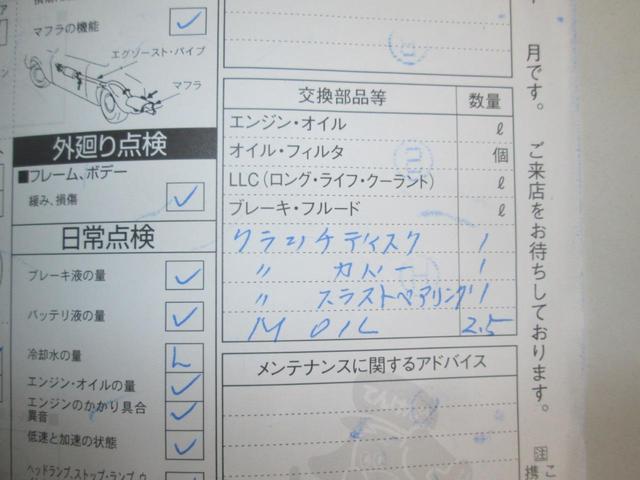 マフラの機能
エグゾースト・パイプ
マフラ
外廻り点検
■フレーム、ボデー
緩み、損傷
日常点検
ブレーキ液の量
バッテリ液の量
冷却水の量
L
エンジン・オイルの量
エンジンのかかり具合
異音
低速と加速の状態
ヘッドランプ、ストップ・ランプ、ウ
交換部品等 数量
エンジン・オイル ℓ
オイル・フィルタ 個
LLC(ロング・ライフ・クーラント) ℓ
ブレーキ・フルード ℓ
クラッチディスク 1
〃 カバー 1
〃 スラストベアリング 1
M OIL 2.5
メンテナンスに関するアドバイス
月です。 ご来店をお待ちしております。
注
こ
携